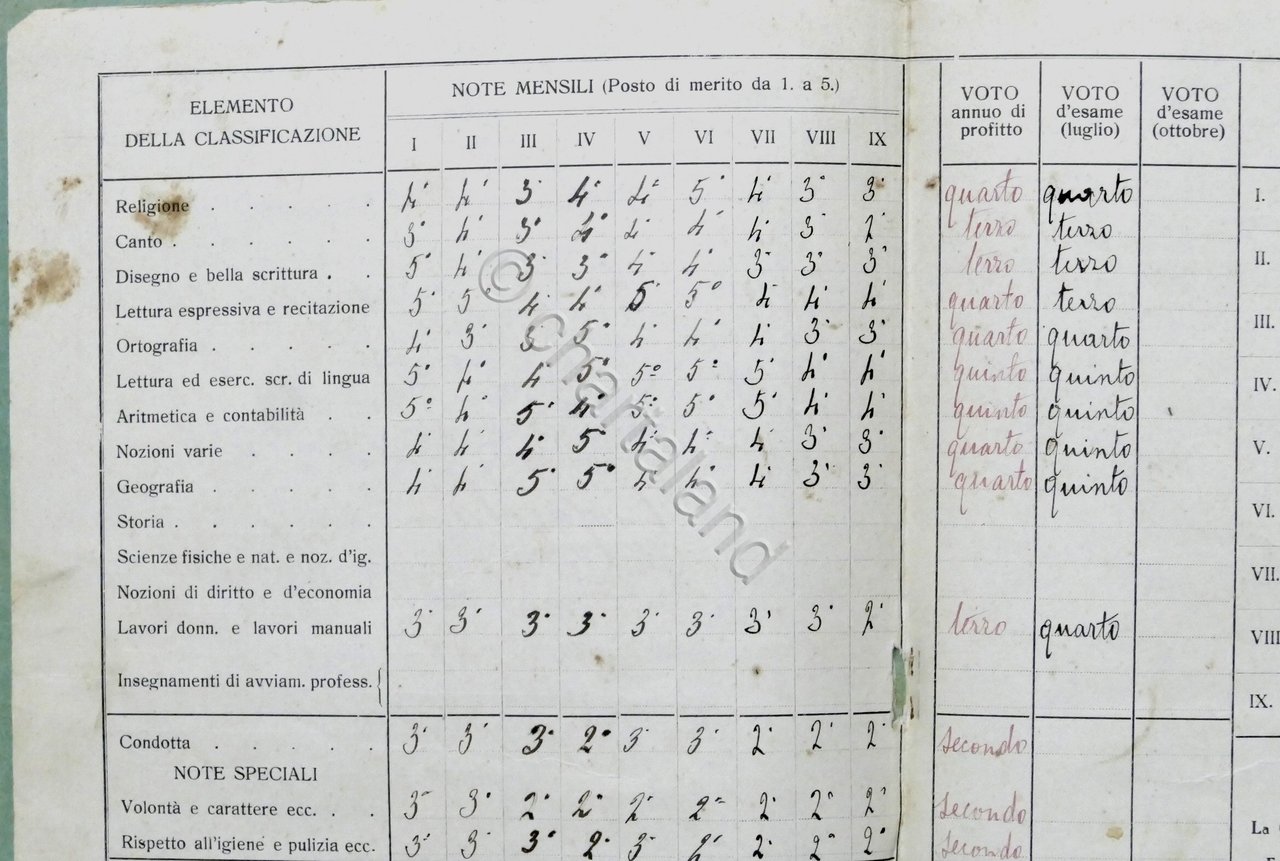 ELEMENTO DELLA CLASSIFICAZIONE
NOTE MENSILI (Posto di merito da 1. a 5.)
VOTO annuo di profitto
VOTO d'esame (luglio)
VOTO d'esame (ottobre)
I II III IV V VI VII VIII IX
Religione . . . . . 4° 4° 3° 4° 4° 5° 4° 3° 3° quarto quarto I.
Canto . . . . . . 3° 4° 3° 4° 4° 4° 4° 3° 2° terzo terzo
Disegno e bella scrittura . . 5° 4° 3° 3° 4° 4° 3° 3° 3° terzo terzo II.
Lettura espressiva e recitazione 5° 5° 4° 4° 5° 5° 4° 4° 4° quarto terzo
Ortografia . . . . . 4° 3° 3° 5° 4° 4° 4° 3° 3° quarto quarto III.
Lettura ed eserc. scr. di lingua 5° 4° 4° 5° 5° 5° 5° 4° 4° quinto quinto IV.
Aritmetica e contabilità . . 5° 4° 5° 4° 5° 5° 5° 4° 4° quinto quinto
Nozioni varie . . . . 4° 4° 4° 5° 4° 4° 4° 3° 3° quarto quinto V.
Geografia . . . . . 4° 4° 5° 5° 4° 4° 4° 3° 3° quarto quinto
Storia . . . . . . VI.
Scienze fisiche e nat. e noz. d'ig.
Nozioni di diritto e d'economia VII.
Lavori donn. e lavori manuali 3° 3° 3° 3° 3° 3° 3° 3° 2° terzo quarto VIII
Insegnamenti di avviam. profess. IX.
Condotta . . . . . 3° 3° 3° 2° 3° 3° 2° 2° 2° secondo
NOTE SPECIALI
Volontà e carattere ecc. . . 3° 3° 2° 2° 2° 2° 2° 2° 2° secondo
La
Rispetto all'igiene e pulizia ecc. 3° 3° 3° 2° 3° 2° 2° 2° 2° secondo
© chartaland